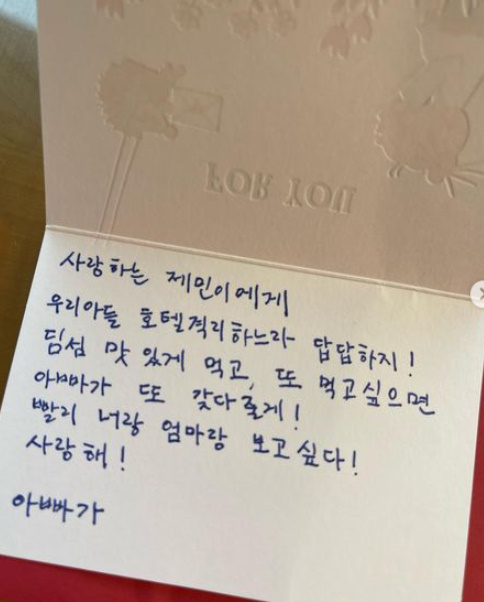 FOR YOU
사랑하는 제민이에게
우리아들 호텔격리하느라 답답하지!
딤섬 맛있게 먹고, 또 먹고싶으면
아빠가 또 갖다줄게!
빨리 너랑 엄마랑 보고싶다!
사랑해!
아빠가